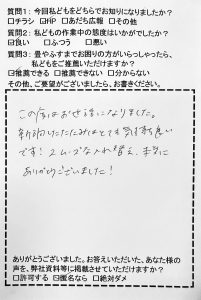 質問1: 今回私どもをどちらでお知りになりましたか?
□チラシ ☑HP □あだち広報 □その他
質問2: 私どもの作業中の態度はいかがでしたか?
☑良い □ふつう □悪い
質問3: 畳やふすまでお困りの方がいらっしゃったら、
私どもをご推薦いただけますか?
☑推薦できる □推薦できない □分からない
その他、ご要望がございましたら、お書きください。
この度はお世話になりました。
新調いただたたみはとても気持ち良い
です! スムーズな入れ替え、本当に
ありがとうございました!
ありがとうございました。お答えいただいた、あなた様の
声を、弊社資料等に掲載させていただけますか?
□許可する ☑匿名なら □絶対ダメ